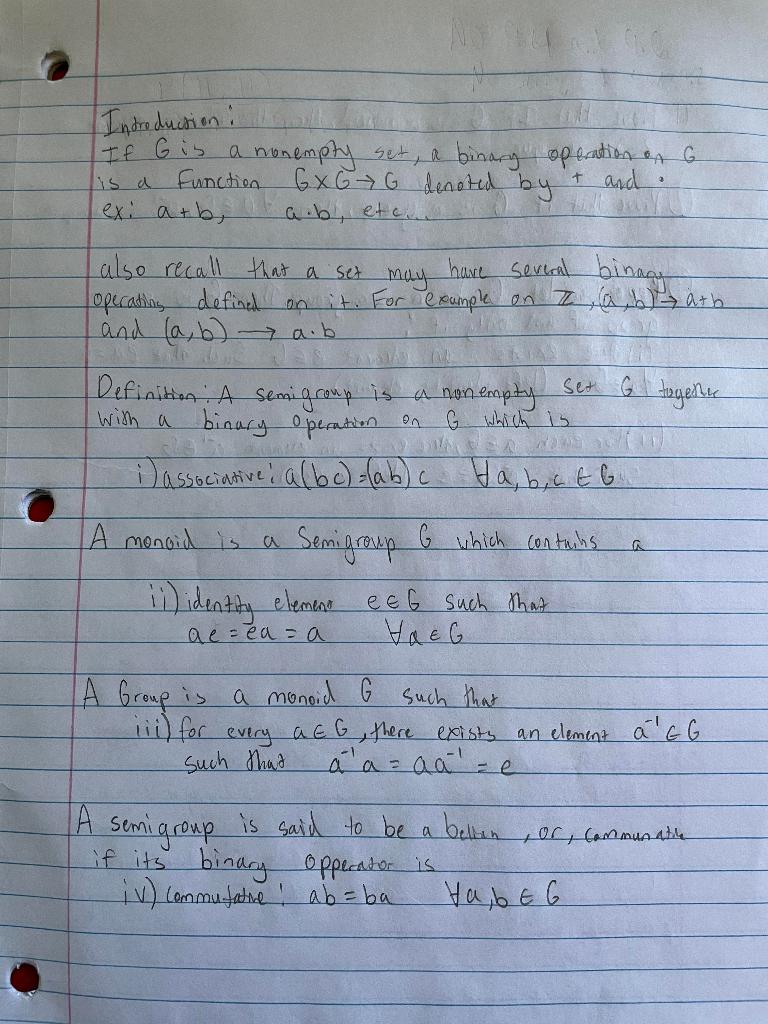 Introduction:
If G is a nonempty set, a binary operation on G
is a function G×G→G denoted by + and ·
ex: a+b, a·b, etc...
also recall that a set may have several binary
operations defined on it. For example on ℤ, (a,b)→a+b
and (a,b) → a·b
Definition: A semigroup is a nonempty set G together
with a binary operation on G which is
i) associative: a(bc)=(ab)c ∀a,b,c ∈ G
A monoid is a Semigroup G which contains a
ii) identity element e∈G such that
ae = ea = a ∀a∈G
A Group is a monoid G such that
iii) for every a∈G, there exists an element a⁻¹∈G
such that a⁻¹a = aa⁻¹ = e
A semigroup is said to be a belian, or, communative
if its binary opperator is
iv) commutative: ab = ba ∀a,b ∈ G